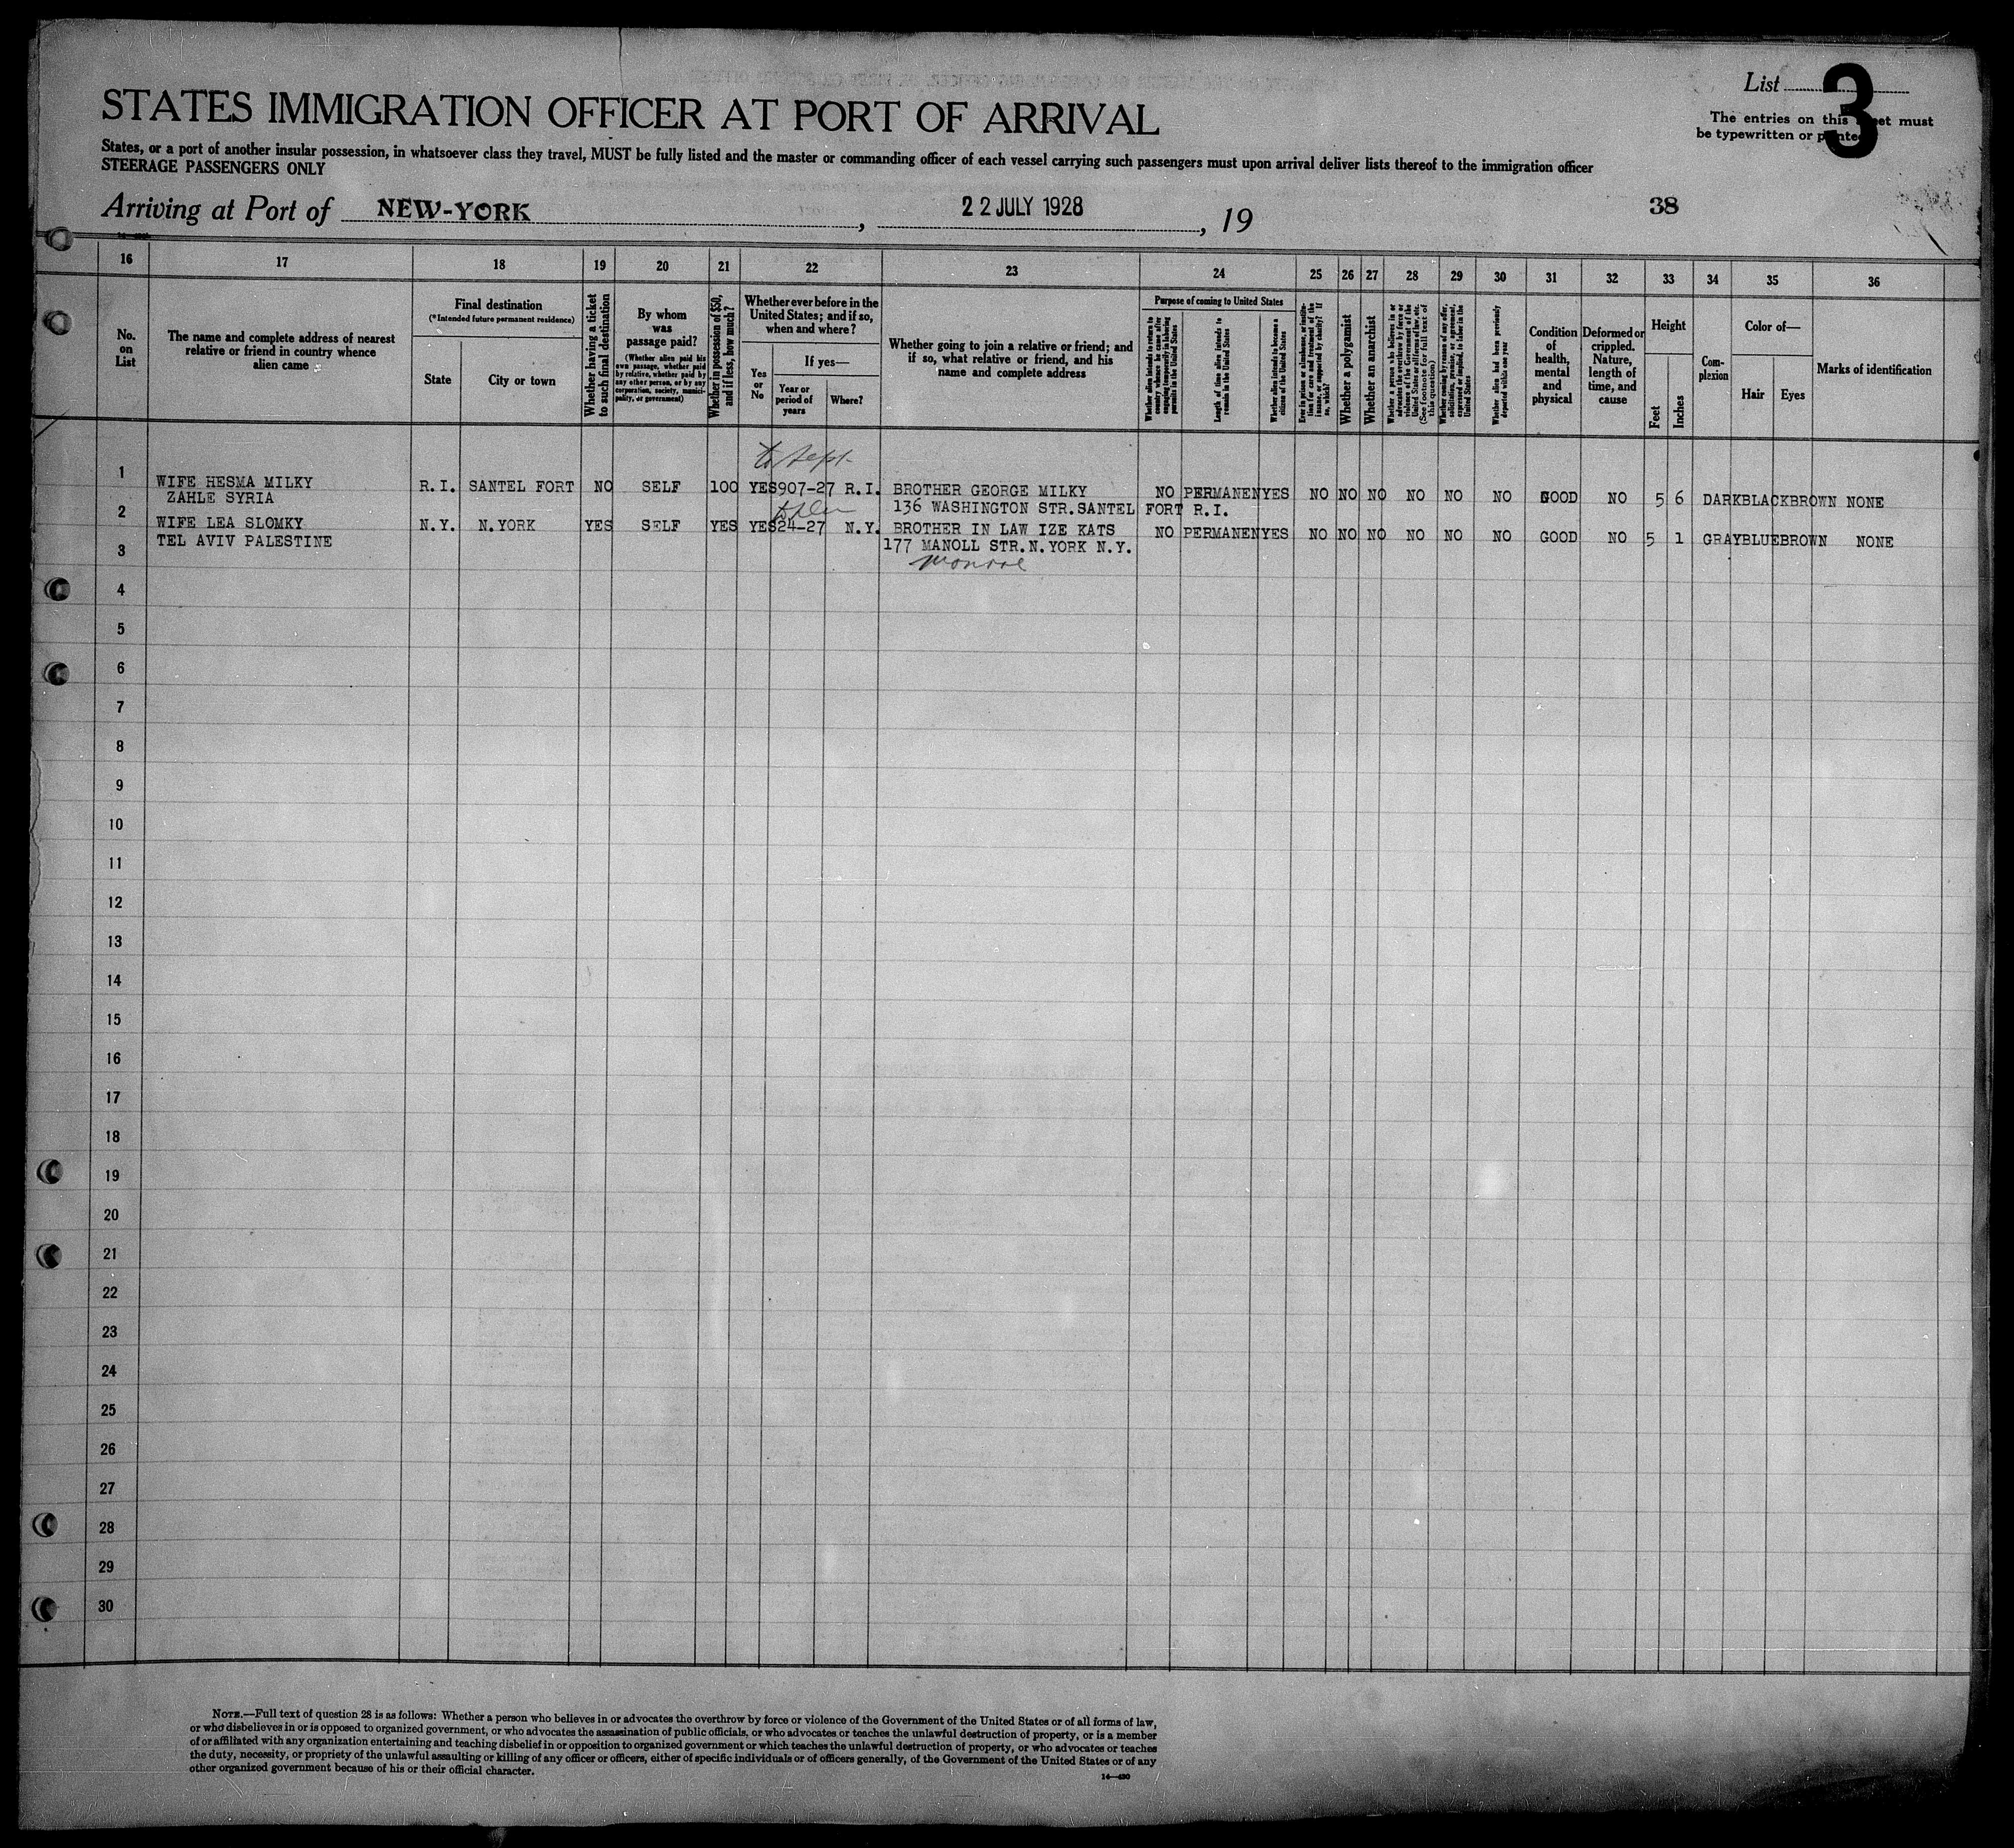 List 3
The entries on this sheet must
be typewritten or printed
STATES IMMIGRATION OFFICER AT PORT OF ARRIVAL
States, or a port of another insular possession, in whatsoever class they travel, MUST be fully listed and the master or commanding officer of each vessel carrying such passengers must upon arrival deliver lists thereof to the immigration officer
STEERAGE PASSENGERS ONLY
Arriving at Port of NEW-YORK, 22 JULY 1928, 19
38
16 17 18 19 20 21 22 23 24 25 26 27 28 29 30 31 32 33 34 35 36
No.
on
List
The name and complete address of nearest
relative or friend in country whence
alien came
Final destination
(*Intended future permanent residence)
State
City or town
Whether having a ticket
to such final destination
By whom
was
passage paid?
(Whether alien paid his
own passage, whether paid
by relative, whether paid by
any other person, or by any
corporation, society, munici-
pality, or government)
Whether in possession of $50,
and if less, how much?
Whether ever before in the
United States; and if so,
when and where?
Yes
or
No
If yes—
Year or
period of
years
Where?
Whether going to join a relative or friend; and
if so, what relative or friend, and his
name and complete address
Purpose of coming to United States
Whether alien intends to return to
country whence he came after
engaging temporarily in laboring
pursuits in the United States
Length of time alien intends to
remain in the United States
Whether alien intends to become a
citizen of the United States
Ever in prison or almshouse, or institu-
tion for care and treatment of the
insane, or supported by charity? If
so, which?
Whether a polygamist
Whether an anarchist
Whether a person who believes in or
advocates the overthrow by force or
violence of the Government of the
United States or all forms of law, etc.
(See footnote for full text of
this question)
Whether coming by reason of any offer,
solicitation, promise, or agreement,
expressed or implied, to labor in the
United States
Whether alien had been previously
deported within one year
Condition
of
health,
mental
and
physical
Deformed or
crippled.
Nature,
length of
time, and
cause
Height
Feet
Inches
Com-
plexion
Color of—
Hair
Eyes
Marks of identification
to Sept.
1 WIFE HESMA MILKY R.I. SANTEL FORT NO SELF 100 YES 907-27 R.I. BROTHER GEORGE MILKY NO PERMANEN YES NO NO NO NO NO NO GOOD NO 5 6 DARK BLACK BROWN NONE
ZAHLE SYRIA 136 WASHINGTON STR. SANTEL FORT R.I.
2 WIFE LEA SLOMKY N.Y. N.YORK YES SELF YES YES 24-27 N.Y. BROTHER IN LAW IZE KATS NO PERMANEN YES NO NO NO NO NO NO GOOD NO 5 1 GRAY BLUE BROWN NONE
TEL AVIV PALESTINE 177 MANOLL STR. N.YORK N.Y.
Monroe
3
4
5
6
7
8
9
10
11
12
13
14
15
16
17
18
19
20
21
22
23
24
25
26
27
28
29
30
NOTE.—Full text of question 28 is as follows: Whether a person who believes in or advocates the overthrow by force or violence of the Government of the United States or of all forms of law,
or who disbelieves in or is opposed to organized government, or who advocates the assassination of public officials, or who advocates or teaches the unlawful destruction of property, or is a member
of or affiliated with any organization entertaining and teaching disbelief in or opposition to organized government or which teaches the unlawful destruction of property, or who advocates or teaches
the duty, necessity, or propriety of the unlawful assaulting or killing of any officer or officers, either of specific individuals or of officers generally, of the Government of the United States or of any
other organized government because of his or their official character.
14—430